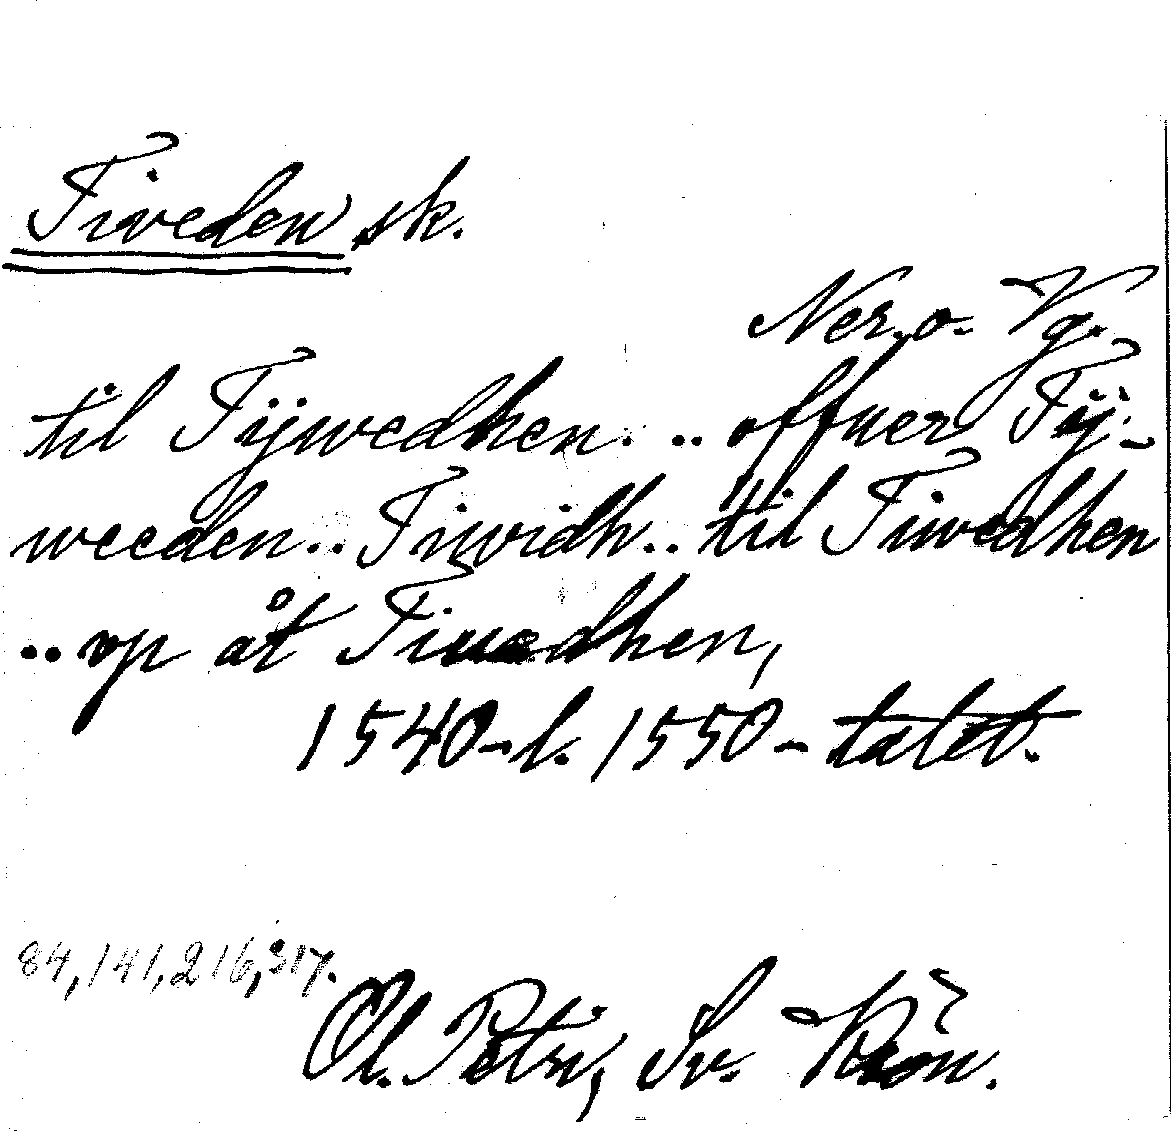 Tiveden sk.
Ner. o. Vg.
til Tijwedhen. .. offuer Tij-
weeden .. Tiwidh .. til Tiwedhen
.. op åt Tiuedhen,
1540- l. 1550-talet.
84, 141, 216, 317.
Ol. Petri, Sv. Krön.